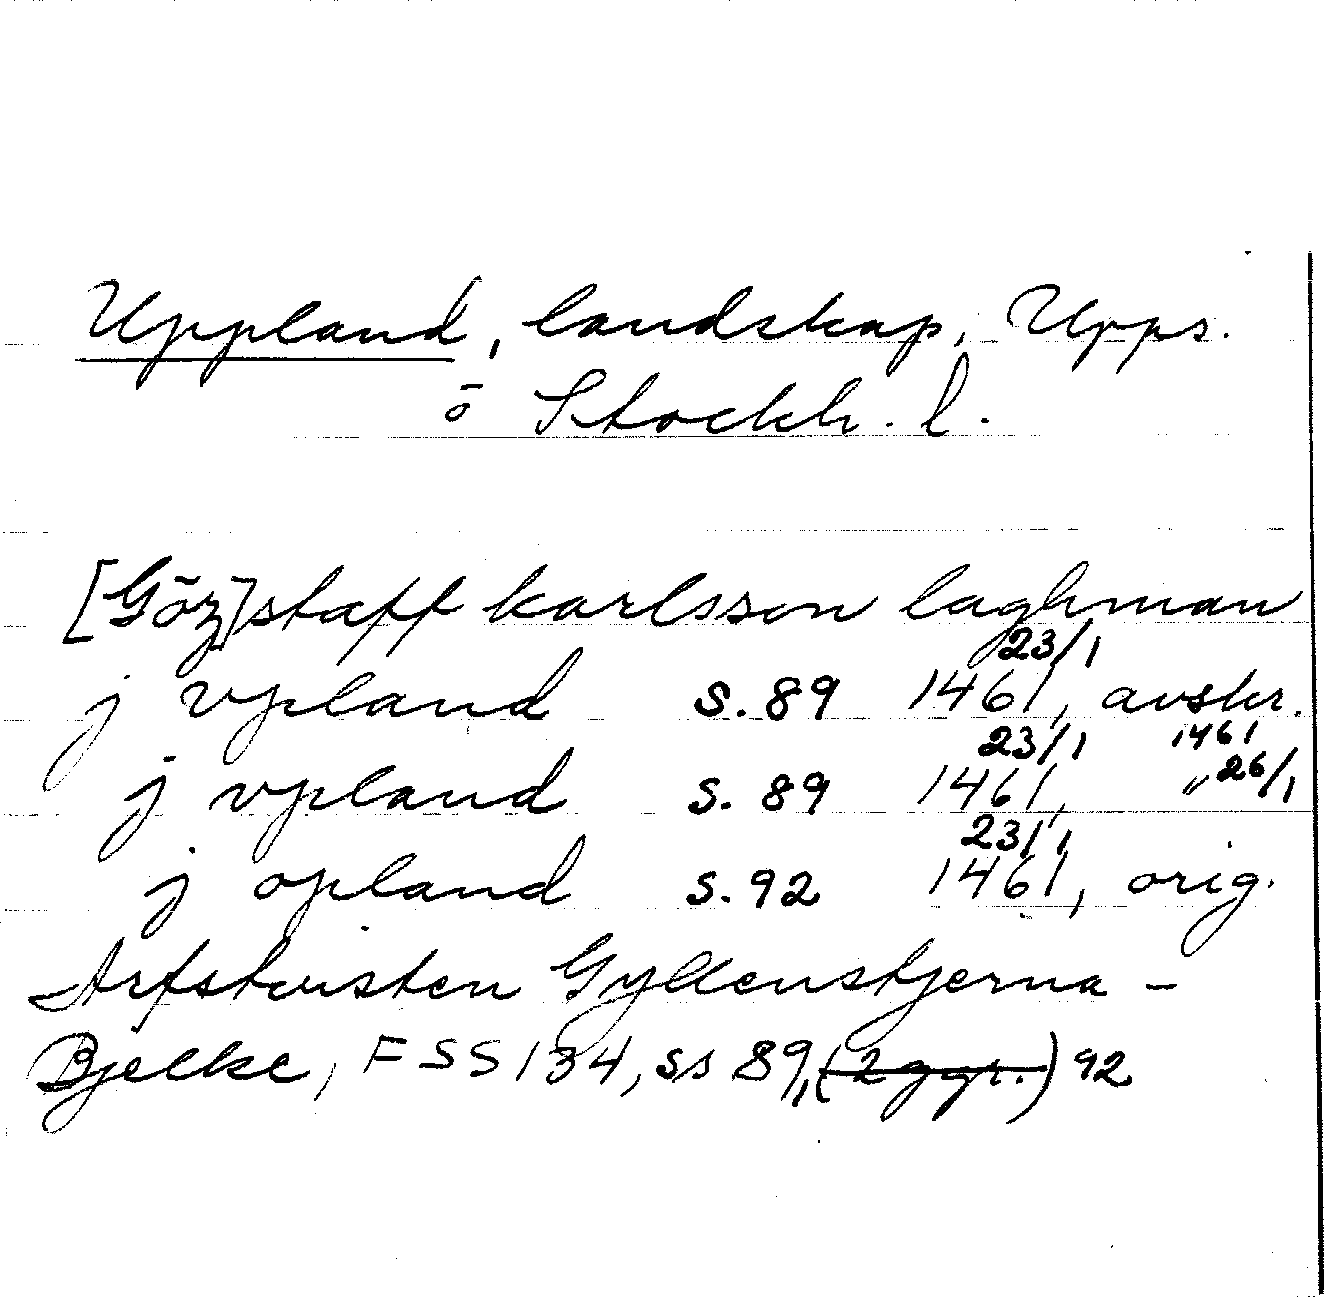 Uppland, landskap, Upps.
o Stockh. l.
[Göz]staff karlsson laghman
j vpland s. 89 23/1 1461, avskr. 1461
j vpland s. 89 23/1 1461, " 26/1
j opland s. 92 23/1 1461, orig.
Arfstvisten Gyllenstjerna -
Bjelke, FSS 134, ss 89, (2 ggr.) 92